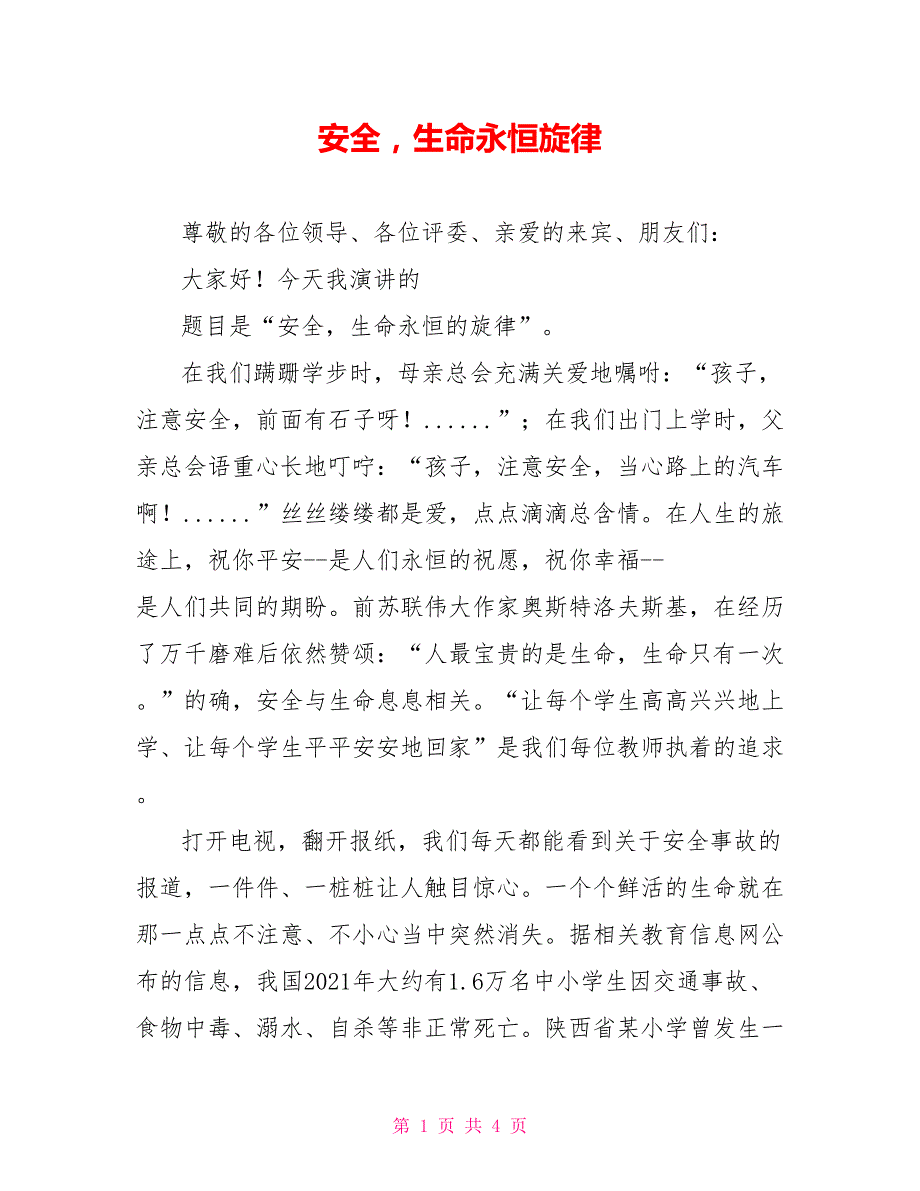 安全，生命永恒旋律
尊敬的各位领导、各位评委、亲爱的来宾、朋友们：
大家好！今天我演讲的
题目是“安全，生命永恒的旋律”。
在我们蹒跚学步时，母亲总会充满关爱地嘱咐：“孩子，
注意安全，前面有石子呀！......”；在我们出门上学时，父
亲总会语重心长地叮咛：“孩子，注意安全，当心路上的汽车
啊！......”丝丝缕缕都是爱，点点滴滴总含情。在人生的旅
途上，祝你平安--是人们永恒的祝愿，祝你幸福--
是人们共同的期盼。前苏联伟大作家奥斯特洛夫斯基，在经历
了万千磨难后依然赞颂：“人最宝贵的是生命，生命只有一次
。”的确，安全与生命息息相关。“让每个学生高高兴兴地上
学、让每个学生平平安安地回家”是我们每位教师执着的追求
。
打开电视，翻开报纸，我们每天都能看到关于安全事故的
报道，一件件、一桩桩让人触目惊心。一个个鲜活的生命就在
那一点点不注意、不小心当中突然消失。据相关教育信息网公
布的信息，我国2021年大约有1.6万名中小学生因交通事故、
食物中毒、溺水、自杀等非正常死亡。陕西省某小学曾发生一
第 1 页 共 4 页